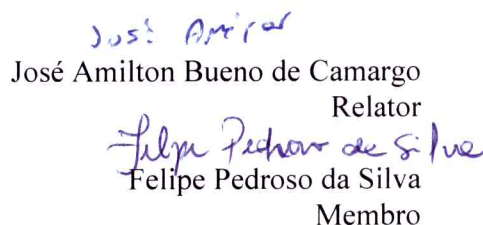 José
José Amilton Bueno de Camargo
Relator
Felipe Pedroso da Silva
Felipe Pedroso da Silva
Membro